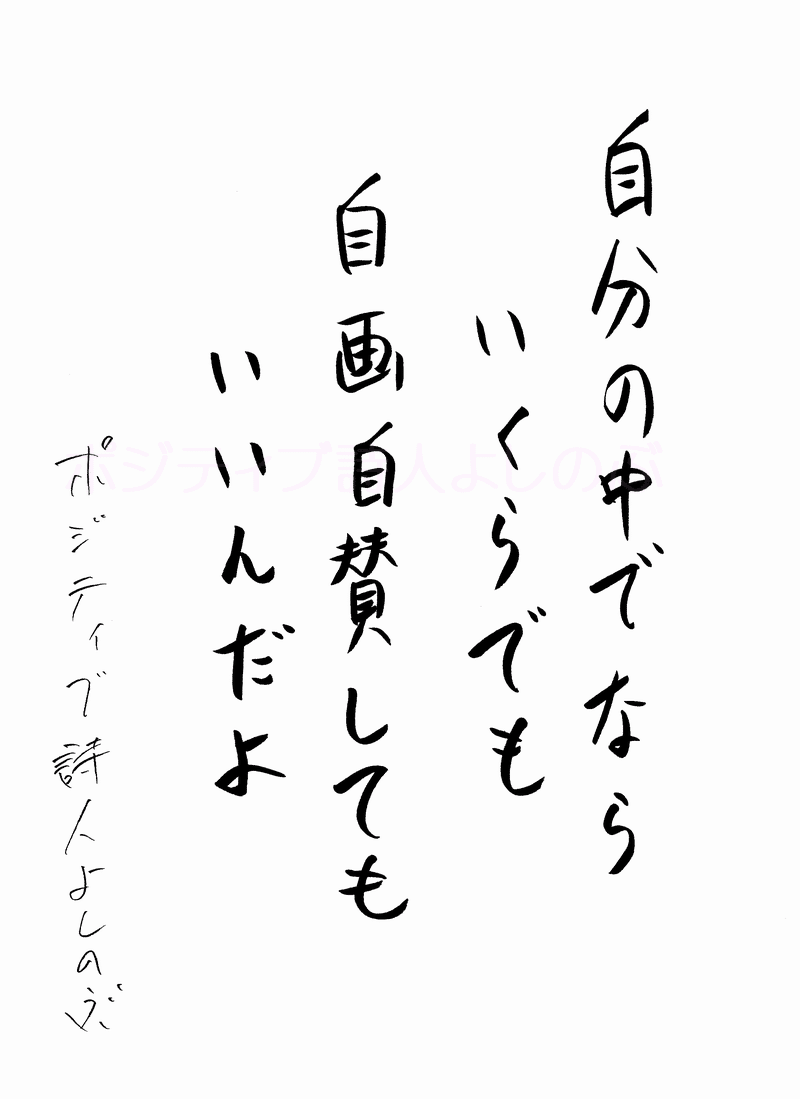 自分の中でなら
いくらでも
自画自賛しても
いいんだよ
ポジティブ詩人よしのぶ
ポジティブ詩人よしのぶ